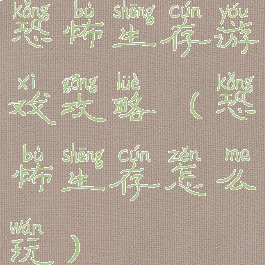 kǒng bù shēng cún yóu
恐怖生存游
xì gōng lüè kǒng
戏攻略（恐
bù shēng cún zěn me
怖生存怎么
wán
玩）